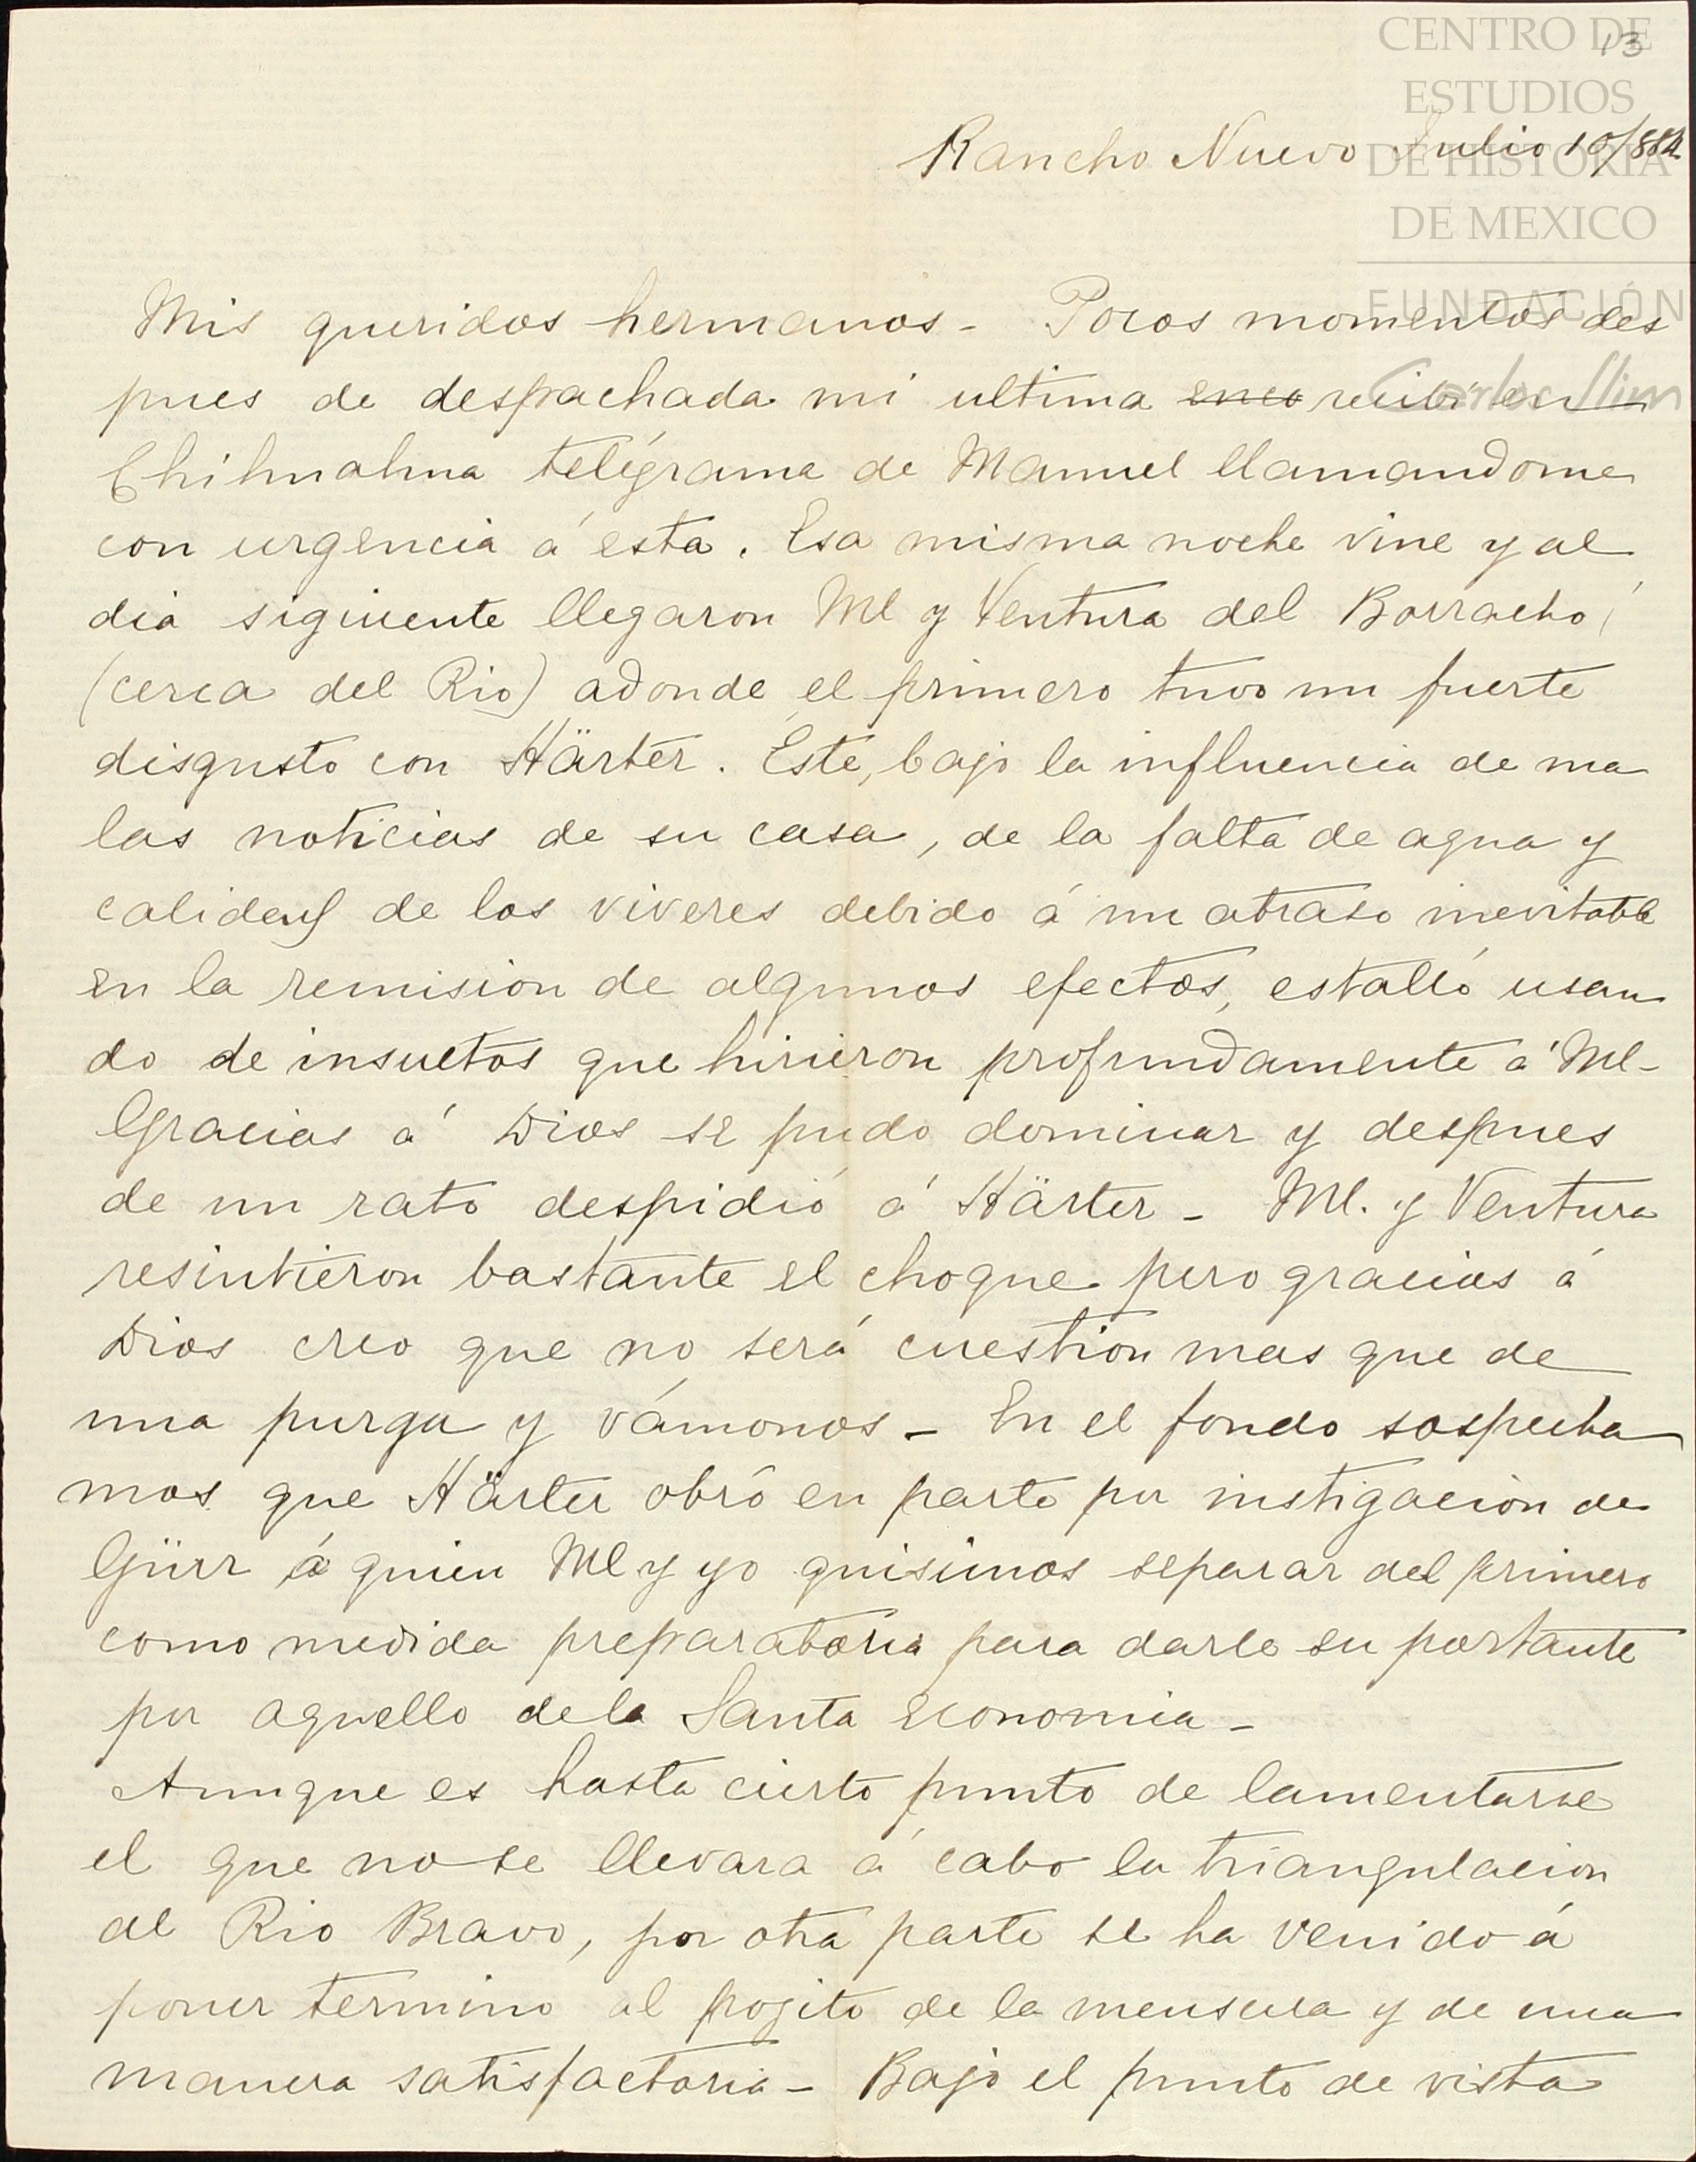 13
CENTRO DE
ESTUDIOS
DE HISTORIA
DE MEXICO
FUNDACIÓN
Carlos Slim
Rancho Nuevo Julio 10/884
Mis queridos hermanos - Pocos momentos des
pues de despachada mi ultima recibí en
Chihuahua telégrama de Manuel llamandome
con urgencia á esta. Esa misma noche vine y al
dia siguiente llegaron Ml y Ventura del Borracho
(cerca del Rio) adonde el primero tuvo un fuerte
disgusto con Härter. Este, bajo la influencia de ma
las noticias de su casa, de la falta de agua y
calidad de los viveres debido á un atraso inevitable
en la remision de algunos efectos, estalló usan
do de insultos que hirieron profundamente á Ml-
Gracias á Dios se pudo dominar y despues
de un rato despidió á Härter - Ml. y Ventura
resintieron bastante el choque pero gracias á
Dios creo que no será cuestion mas que de
una purga y vámonos - En el fondo sospecha
mos que Härter obró en parte por instigacion de
Gürr á quien Ml y yo quisimos separar del primero
como medida preparatoria para darle su portante
por aquello de la Santa economia -
Aunque es hasta cierto punto de lamentarse
el que no se llevara á cabo la triangulacion
al Rio Bravo, por otra parte se ha venido á
poner termino al pozito de la mensura y de una
manera satisfactoria - Bajo el punto de vista